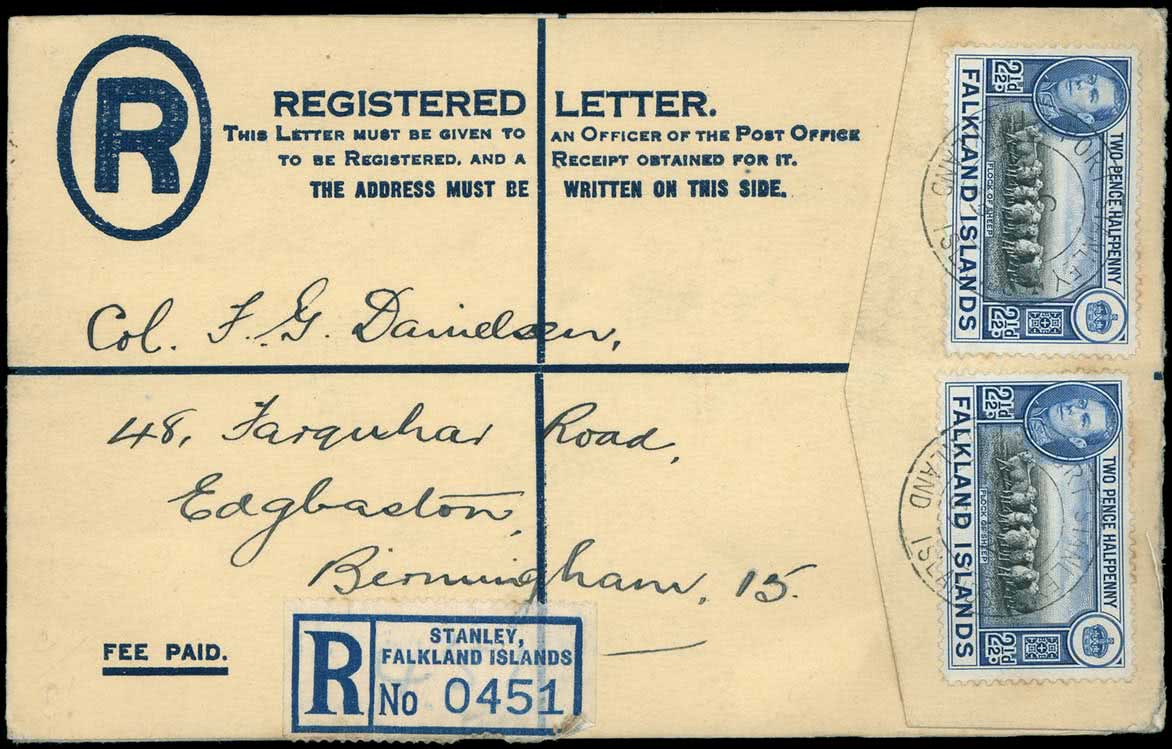 R
REGISTERED LETTER.
THIS LETTER MUST BE GIVEN TO AN OFFICER OF THE POST OFFICE
TO BE REGISTERED, AND A RECEIPT OBTAINED FOR IT.
THE ADDRESS MUST BE WRITTEN ON THIS SIDE.
Col. F. G. Danielsen,
48, Farquhar Road,
Edgbaston,
Birmingham, 15.
FEE PAID.
R
STANLEY,
FALKLAND ISLANDS
No 0451
2½d
TWO PENCE HALFPENNY
FLOCK OF SHEEP
FALKLAND ISLANDS
2½d
PORT STANLEY
2½d
TWO PENCE HALFPENNY
FLOCK OF SHEEP
FALKLAND ISLANDS
2½d